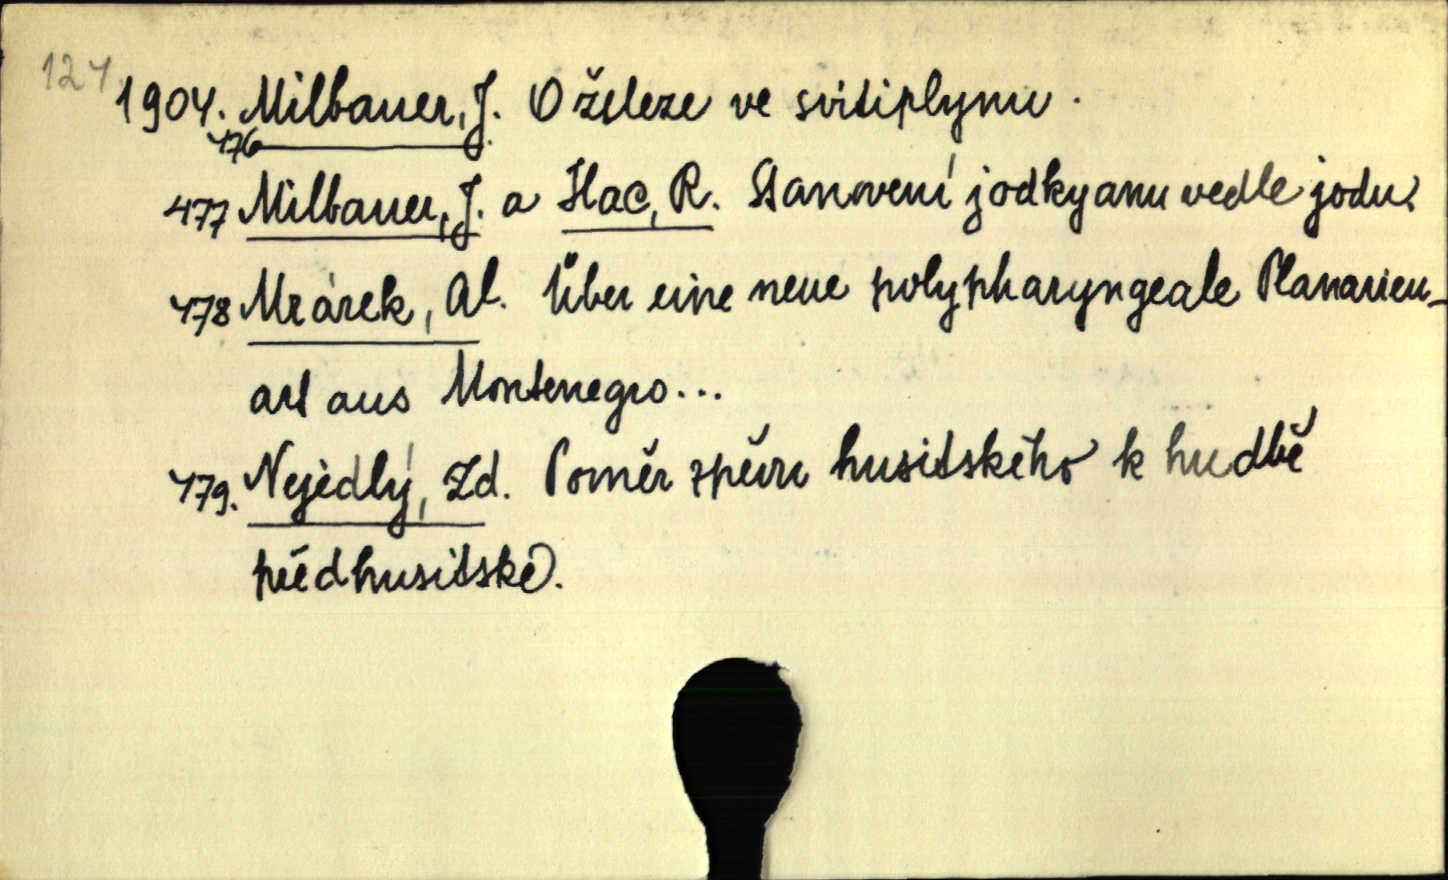 124.
1904. Milbauer, J. O železe ve svítiplynu.
476
477 Milbauer, J. a Hac, R. Stanovení jodkyanu vedle jodu.
478 Mrázek, Al. Über eine neue polypharyngeale Planarien-
art aus Montenegro...
479. Nejedlý, Zd. Poměr zpěvu husitského k hudbě
předhusitské.